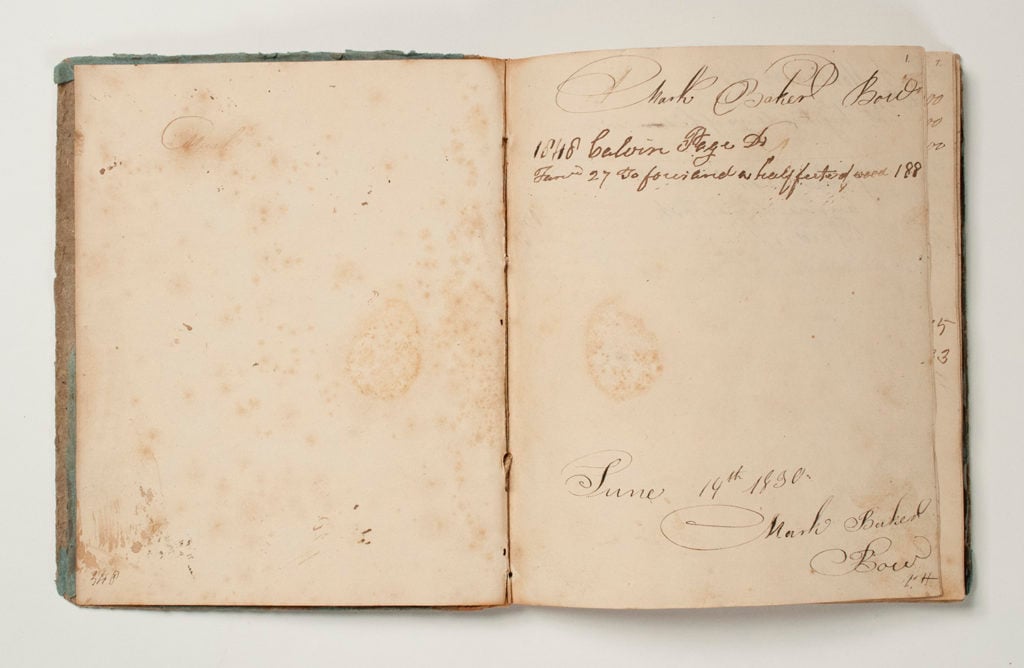 Mark
348
1.
Mark Baker Bow
1848 Calvin Page Dr
Janr 27 To four and a half feet of wood 188
June 19th 1830.
Mark Baker
Bow